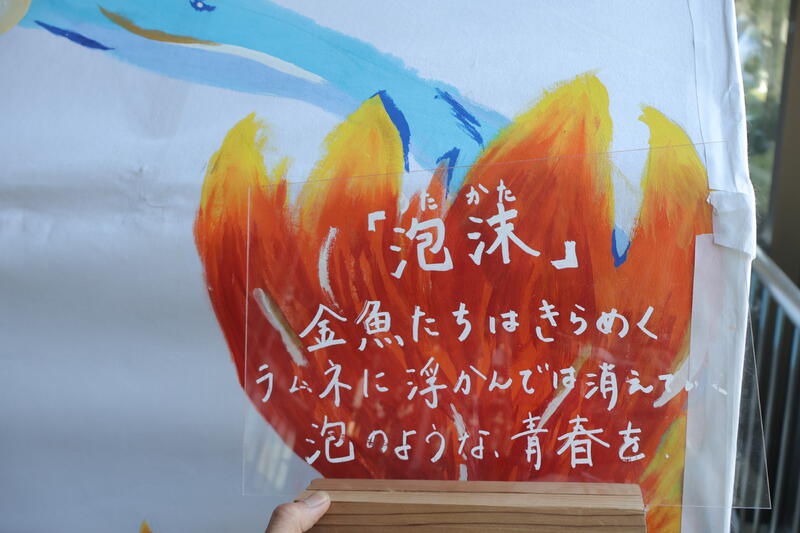 たかた
「泡沫」
金魚たちはきらめく
ラムネに浮かんでは消えていく
泡のような、青春を.